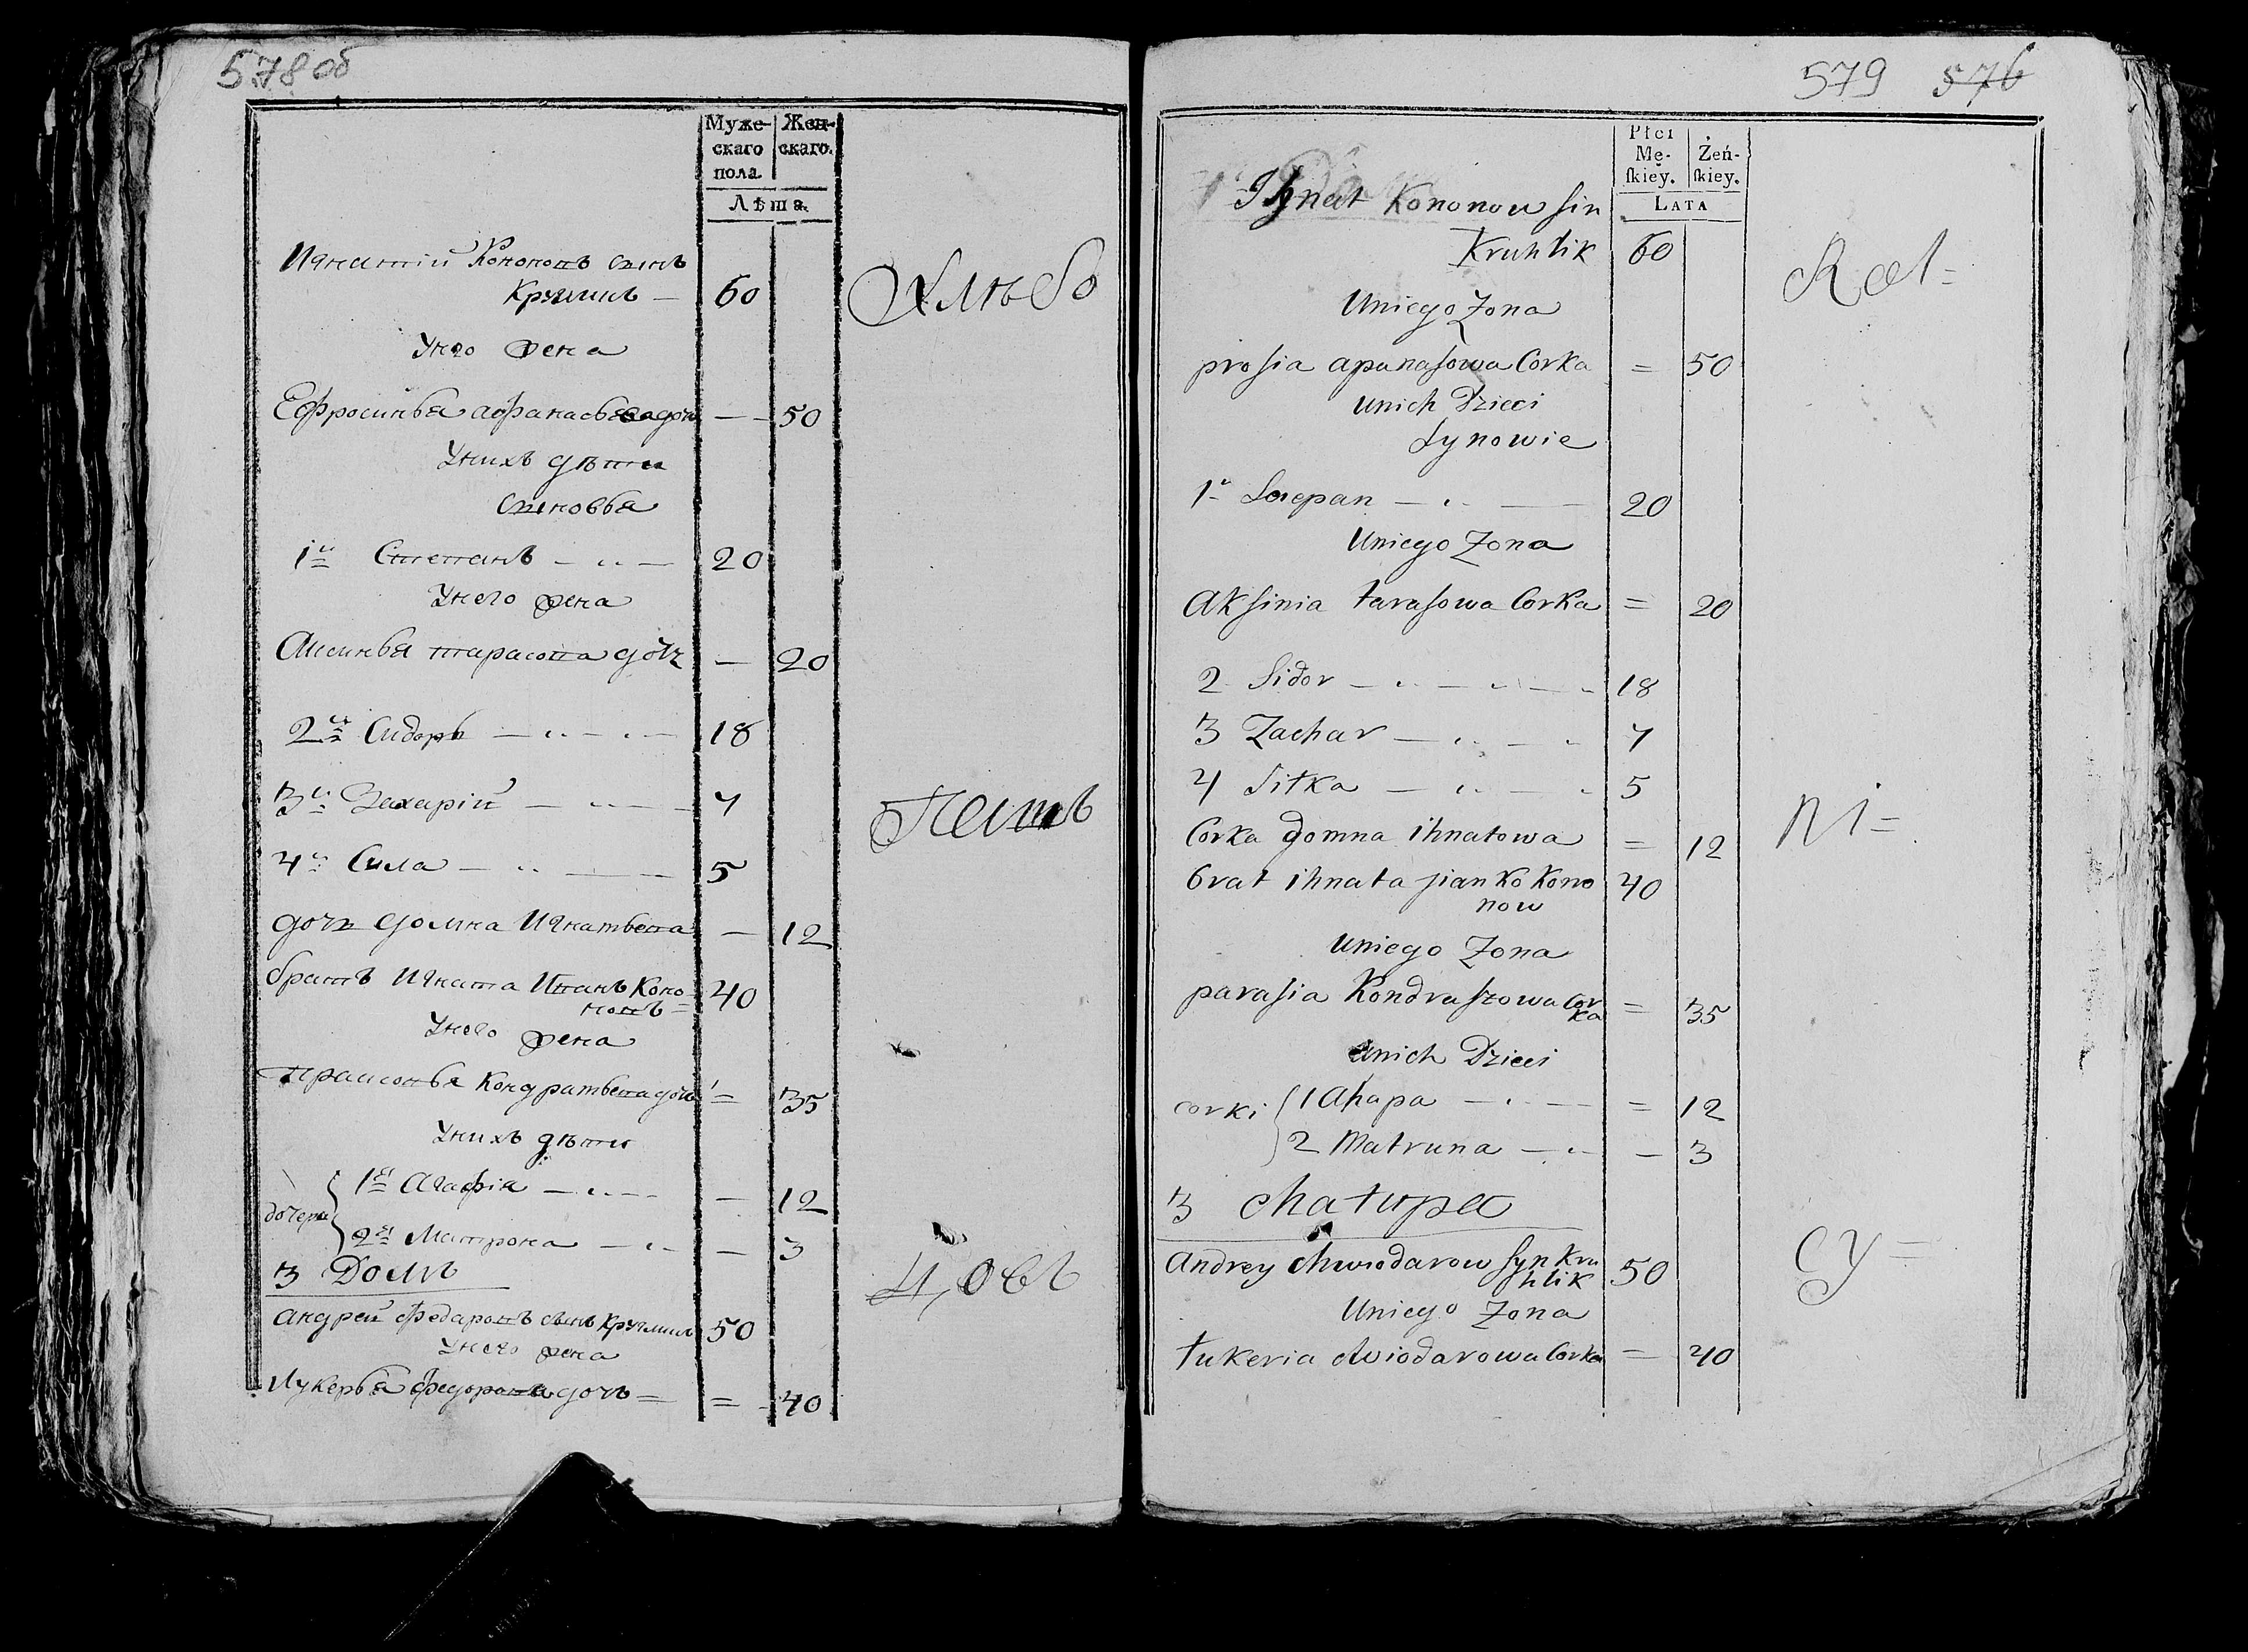 578 об
Муже-
скаго
пола
Жен-
скаго.
Лѣта
Игнатій Кононовъ сынъ
Кругликъ — 60
Унего жена
Ефросинья афанасьева дочь — — 50
Унихъ дѣти
сыновья
1й Степанъ — 20
Унего жена
Аксинья тарасова дочь — 20
2й Сидоръ — 18
3й Захарій — 7
4й Сила — 5
дочь домна Игнатьева — 12
братъ Игната Иванъ Коно-
новъ = 40
Унего жена
Прасковья Кондратьева дочь = 35
Унихъ дѣти
дочери
1я Агафія — 12
2я Матрона — 3
3 Домъ
андрей федаровъ сынъ Кругликъ 50
Унего жена
Лукерья федорова дочь = = 40
Хлѣбо
Пашъ
цовъ
579 576
Płci
Mę-
skiey.
Żeń-
skiey.
LATA
Ihnat Kononow sin
Kruhlik 60
Uniego Zona
prosia apanasowa Corka = 50
Unich Dzieci
Synowie
1 Sciepan — 20
Uniego Zona
Aksinia tarasowa Corka = 20
2 Sidor — 18
3 Zachar — 7
4 Siłka — 5
Corka domna ihnatowa = 12
brat ihnata jianko Kono
now 40
Uniego Zona
parasia Kondraszowa Cor
ka = 35
Unich Dzieci
corki
1 Ahapa — = 12
2 Matruna — — 3
3 chatupa
Andrey chwiodarow syn Kru
hlik 50
Uniego Zona
łukeria chwiodarowa Corka = 40
Rol=
ni=
cy=